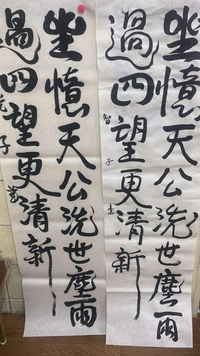 坐憶天公洗世塵雨
過四望更清新
坐憶天公洗世塵雨
過四望更清新